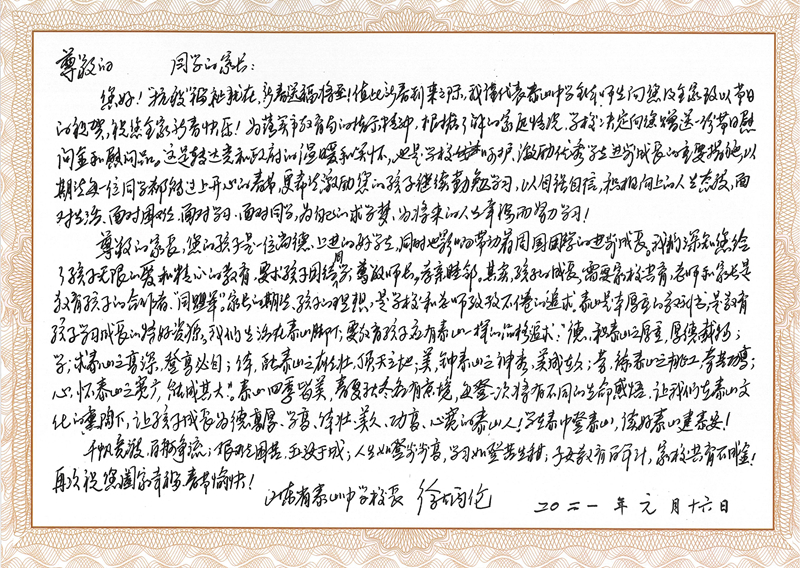 尊敬的 同学的家长：
您好！"抗疫"福祉我在，新春送福将至！值此新春到来之际，我谨代表泰山中学全体师生向您及全家致以节日
的祝贺，祝您全家新春快乐！为落实市教育局的指示精神，根据了解的家庭情况，学校决定向您赠送一份节日慰
问金和慰问品。这是转达党和政府的温暖和关怀，也是学校 激励优秀学生进步成长的重要措施，以
期望每一位同学都能过上开心的春节，更希望激励您的孩子继续勤勉学习，以自强自信，积极向上的人生态度，面
对生活、面对困难、面对学习、面对同学，为自己的求学梦、为将来的人生幸福而努力学习！
尊敬的家长，您的孩子是一位尚德、上进的好学生，同时也影响带动着周围同学的进步成长。我们深知您给
了孩子无限的爱和精心的教育，要求孩子团结同学，尊敬师长，孝亲睦邻。其实，孩子的成长，需要家校共育，老师和家长是
教育孩子的合作者、"同盟军"。家长的期望、孩子的理想，是学校和老师孜孜不倦的追求。泰山是丰厚的 ，是教育
孩子学习成长的特好资源。我们生活在泰山脚下，要教育孩子应有泰山一样的品格追求："德，和泰山之厚重，厚德载物；
学，求泰山之高深，登高必自；体，能泰山之雄壮，顶天立地；美，钟泰山之神秀，美成在久；劳，
心，怀泰山之宽广，能成其大"。泰山四季皆美，春夏秋冬各有意境，每登一次将有不同的生命感悟，让我们在泰山文
化的熏陶下，让孩子成长为德高厚、学高、体壮、美久、功高、心宽的泰山人，学在泰中登泰山，读好泰山建泰安！
千帆竞发，百舸争流；艰难困苦，玉汝于成；人生如登步步高，学习如登苦生甜；子女教育百年计，家校共育不成金！
再次祝您阖家幸福，春节愉快！
山东省泰山中学校长 徐炳伦 二〇二一年元月十六日